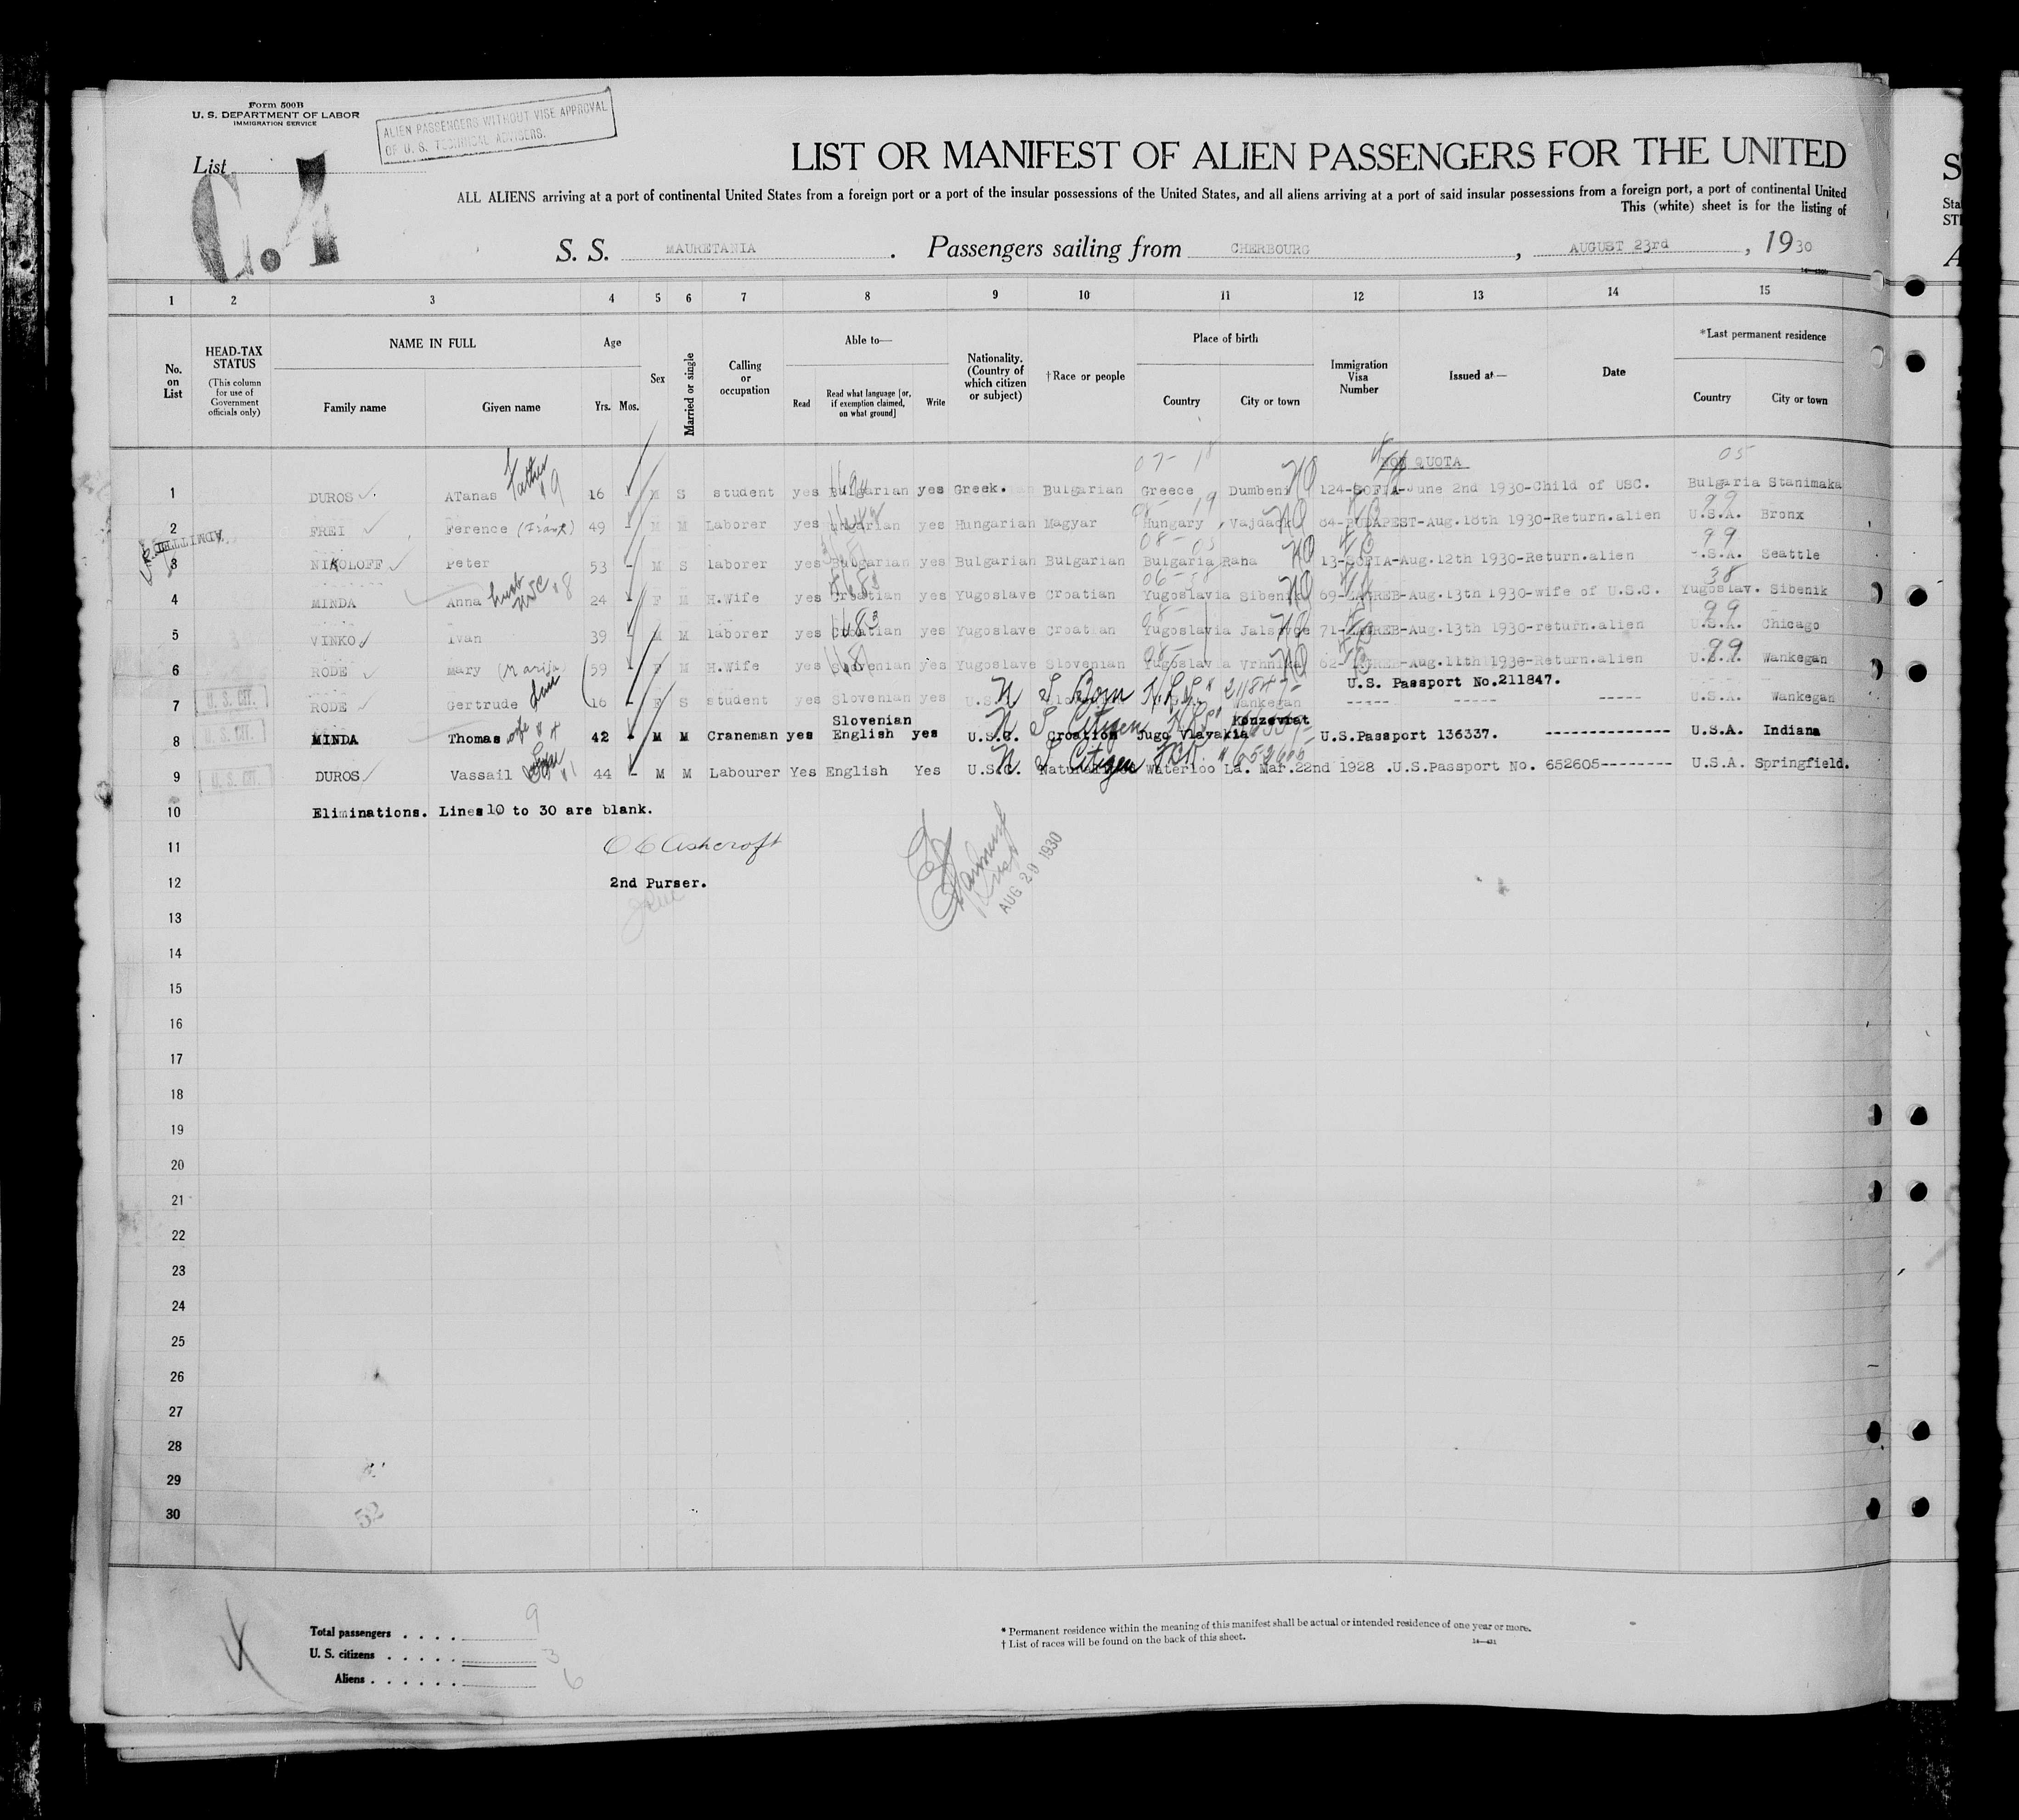 Form 500B
U. S. DEPARTMENT OF LABOR
IMMIGRATION SERVICE
ALIEN PASSENGERS WITHOUT VISE APPROVAL
OF U. S. TECHNICAL ADVISERS.
List
C.4
LIST OR MANIFEST OF ALIEN PASSENGERS FOR THE UNITED
ALL ALIENS arriving at a port of continental United States from a foreign port or a port of the insular possessions of the United States, and all aliens arriving at a port of said insular possessions from a foreign port, a port of continental United
This (white) sheet is for the listing of
S. S. MAURETANIA . Passengers sailing from CHERBOURG , AUGUST 23rd , 1930
1 2 3 4 5 6 7 8 9 10 11 12 13 14 15
No. on List
HEAD-TAX STATUS
(This column for use of Government officials only)
NAME IN FULL
Family name Given name
Age
Yrs. Mos.
Sex
Married or single
Calling or occupation
Able to—
Read
Read what language [or, if exemption claimed, on what ground]
Write
Nationality. (Country of which citizen or subject)
†Race or people
Place of birth
Country City or town
Immigration Visa Number
Issued at—
Date
*Last permanent residence
Country City or town
NON QUOTA
1 DUROS ATanas father 9 16 - M S student yes Bulgarian yes Greek. Bulgarian Greece Dumbeni NQ 124-SOFIA-June 2nd 1930-Child of USC. Bulgaria Stanimaka
2 FREI Ference 49 - M M Laborer yes yes Hungarian Magyar Hungary NQ 84-BUDAPEST-Aug.18th 1930-Return.alien U.S.A. Bronx
ADMITTED
3 NIKOLOFF Peter 53 - M S laborer yes Bulgarian yes Bulgarian Bulgarian Bulgaria Raha NQ 13-SOFIA-Aug.12th 1930-Return.alien U.S.A. Seattle
4 MINDA Anna husb USC 8 24 - F M H.Wife yes Croatian yes Yugoslave Croatian Yugoslavia Sibenik NQ 69-ZAGREB-Aug.13th 1930-wife of U.S.C. Yugoslav. Sibenik
5 VINKO Ivan 39 - M M laborer yes Croatian yes Yugoslave Croatian Yugoslavia NQ 71-ZAGREB-Aug.13th 1930-return.alien U.S.A. Chicago
6 RODE Mary (Marija) 59 - F M H.Wife yes Slovenian yes Yugoslave Slovenian Yugoslavia Vrhnika NQ 62-ZAGREB-Aug.11th 1930-Return.alien U.S.A. Wankegan
U.S. Passport No.211847.
U. S. CIT.
7 RODE Gertrude dau 16 - F S student yes Slovenian yes U.S. Born Wankegan ----- ----- ----- U.S.A. Wankegan
U. S. CIT.
Slovenian Konzevrat
8 MINDA Thomas wife # 4 42 - M M Craneman yes English yes U.S.C. Croation U S Citizen Jugo Vlavakia U.S.Passport 136337. -------------- U.S.A. Indiana
U. S. CIT.
9 DUROS Vassail 44 - M M Labourer Yes English Yes U.S.C. U S Citizen Waterloo La. Mar.22nd 1928 .U.S.Passport No. 652605-------- U.S.A. Springfield.
10 Eliminations. Lines 10 to 30 are blank.
11 Ashcroft
12 2nd Purser.
AUG 29 1930
13
14
15
16
17
18
19
20
21
22
23
24
25
26
27
28
29
30
52
Total passengers . . . . 9
U. S. citizens . . . . . 3
Aliens . . . . . . 6
* Permanent residence within the meaning of this manifest shall be actual or intended residence of one year or more.
† List of races will be found on the back of this sheet.